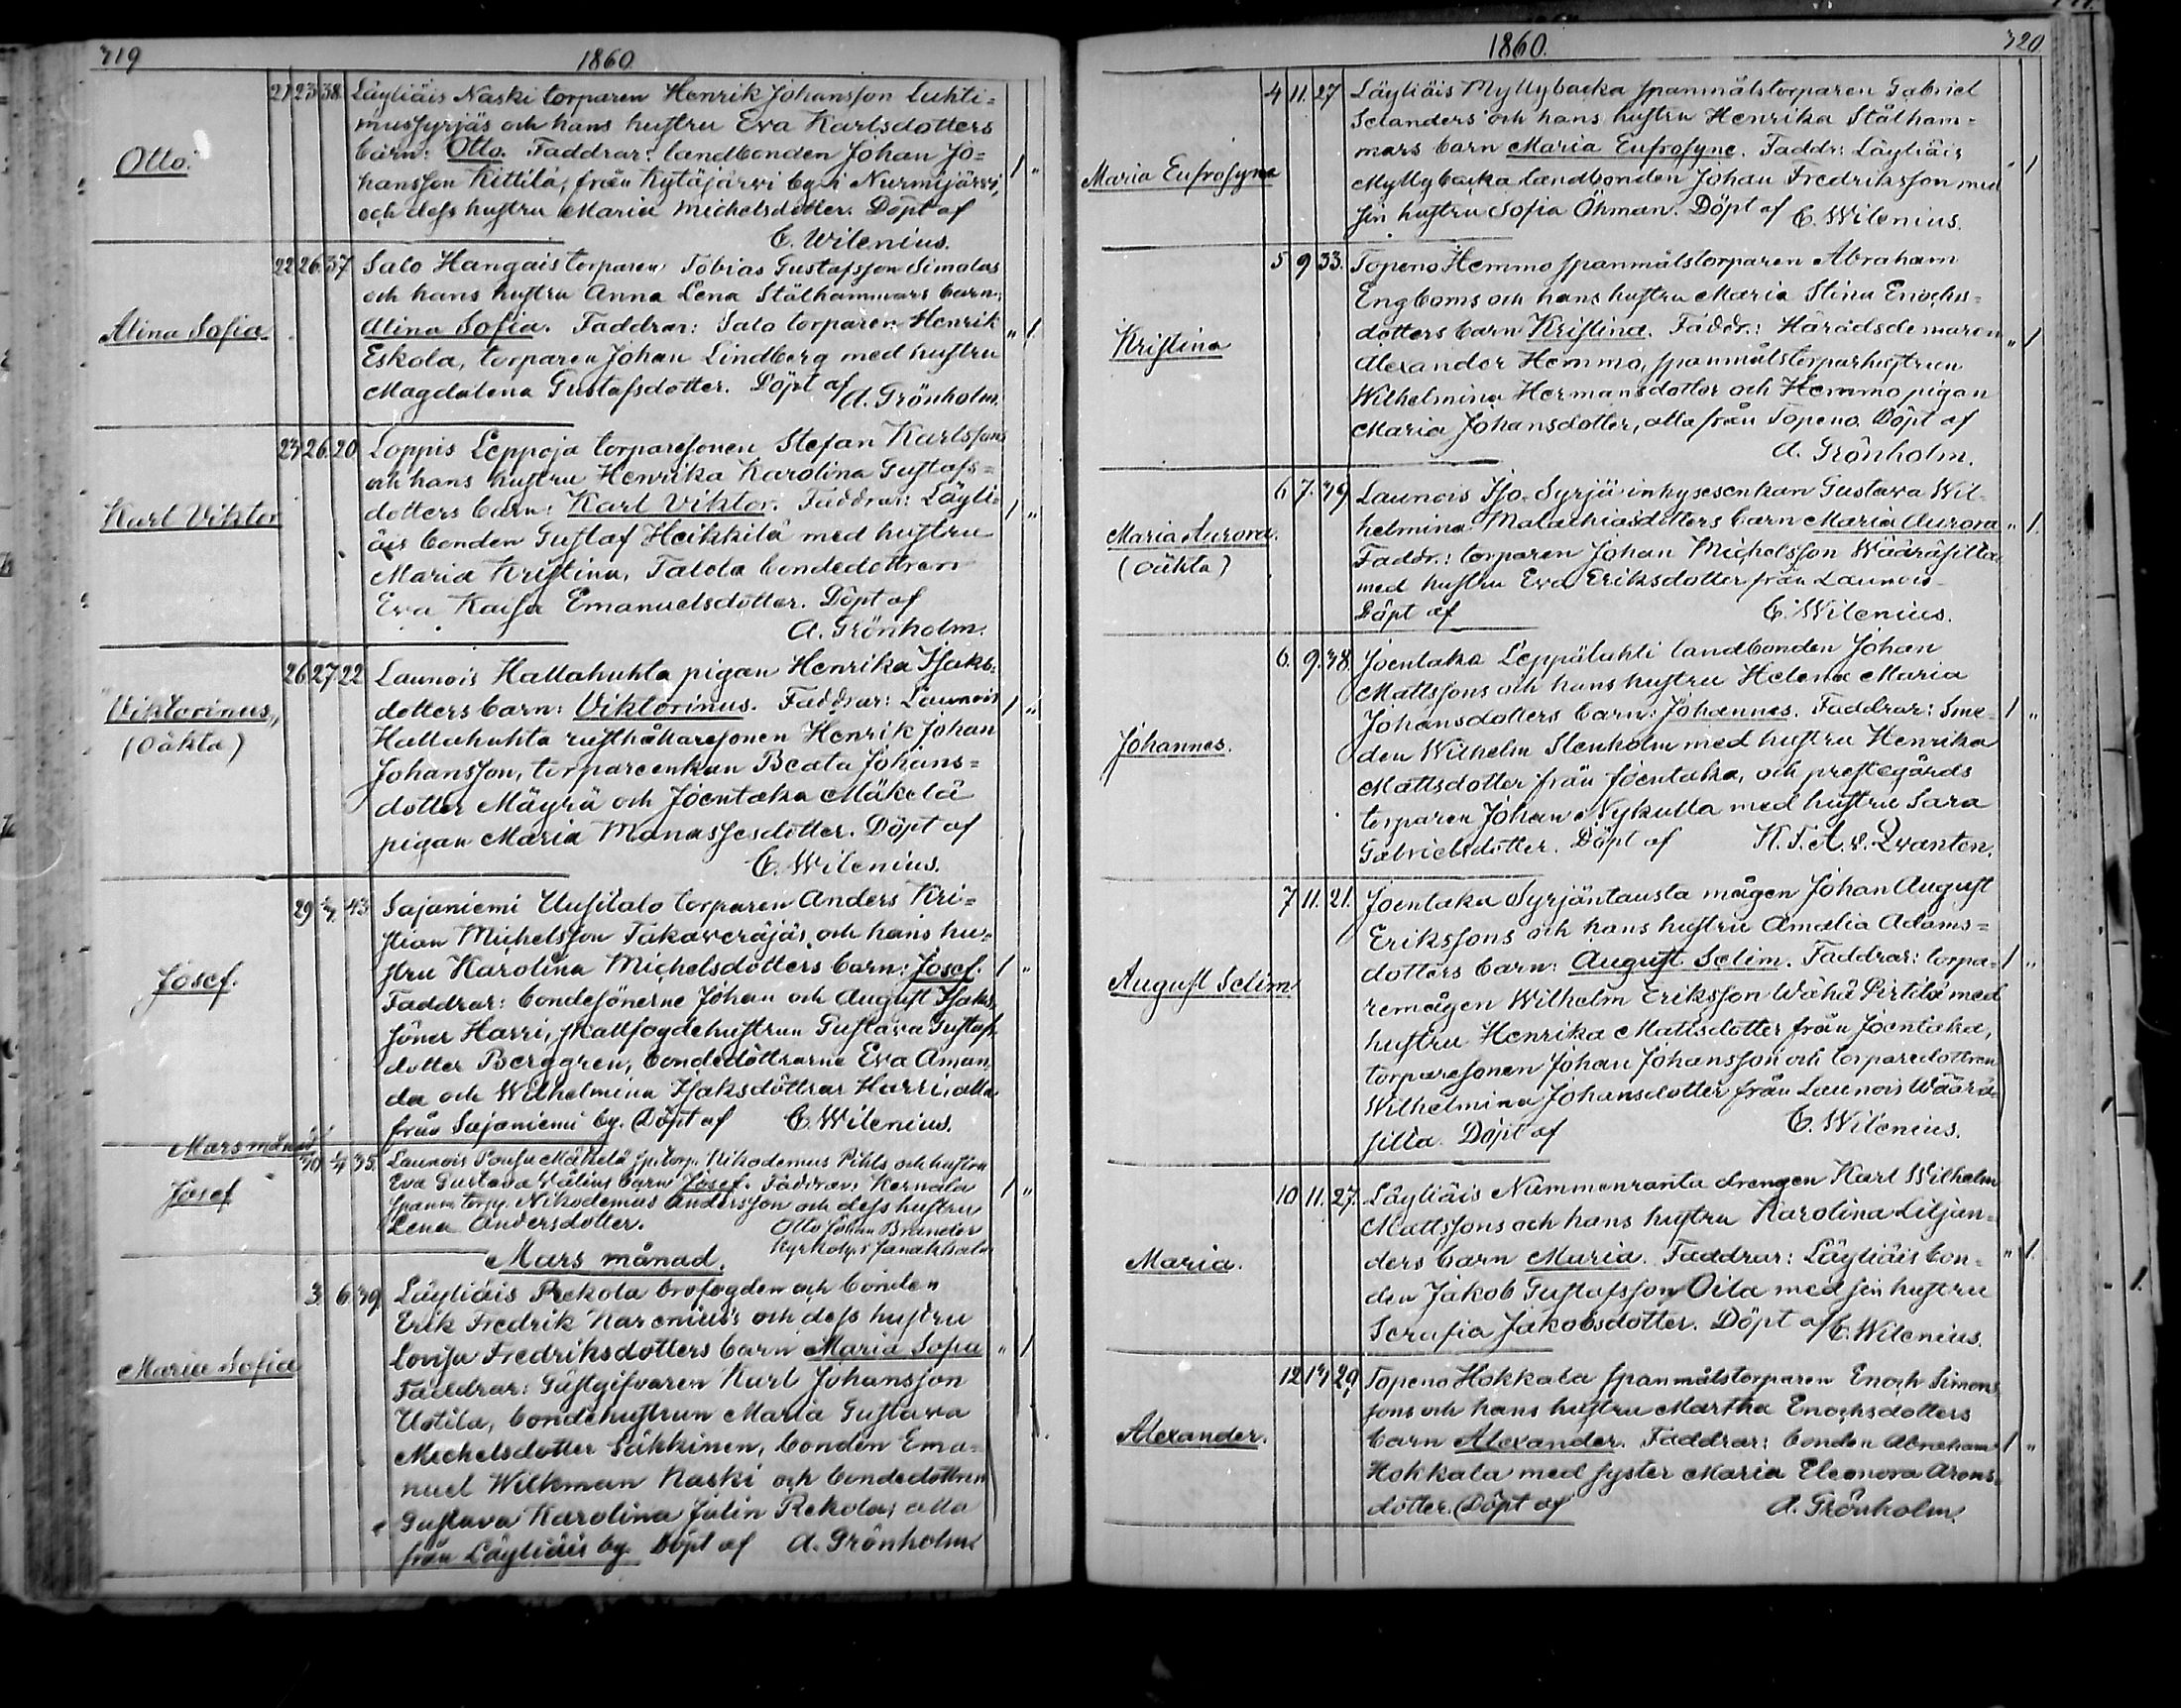 319 1860
Otto.
21 23 38. Läyliäis Naski torparen Henrik Johansson Luhti=
mussyrjäs och hans hustru Eva Karlsdotters
barn: Otto. Faddrar: landbonden Johan Jo=
hansson Kittilä, från Kytäjärvi by i Nurmijärvi, 1 "
och dess hustru Maria Michelsdotter. Döpt af
C. Wilenius.
22 26 37 Salo Hangais torparen Tobias Gustafsson Simolas
och hans hustru Anna Lena Stålhammars barn:
Alina Sofia. Alina Sofia. Faddrar: Salo torparen Henrik " 1.
Eskola, torparen Johan Lindberg med hustru
Magdalena Gustafsdotter. Döpt af A. Grönholm.
23 26 20 Loppis Leppoja torparesonen Stefan Karlssons
och hans hustru Henrika Karolina Gustafs=
Karl Viktor dotters barn: Karl Viktor. Faddrar: Läyli= 1 "
äis bonden Gustaf Heikkilä med hustru
Maria Kristina, Talola bondedottren
Eva Kaisa Emanuelsdotter. Döpt af
A. Grönholm.
26 27 22 Launois Hallahuhta pigan Henrika Isaks=
Viktorinus, dotters barn: Viktorinus. Faddrar: Launois 1 "
(Oäkta) Hallahuhta rusthållaresonen Henrik Johan
Johansson, torpareenkan Beata Johans=
dotter Mäyrä och Joentaka Mäkelä
pigan Maria Manassesdotter. Döpt af
C. Wilenius.
29 43 Sajaniemi Uusitalo torparen Anders Kri=
stian Michelsson Takaveräjäs och hans hu=
Josef. stru Karolina Michelsdotters barn: Josef. 1 "
Faddrar: bondesönerne Johan och August Isaks
söner Harri, skallfogdehustrun Gustava Gustafs
dotter Berggren, bondedöttrarne Eva Aman
da och Wilhelmina Isaksdöttrar Harri, alla
från Sajaniemi by. Döpt af C. Wilenius.
Mars månad
Josef 30 1/4 35. Launois Mäkelä sp. torp. Nikodemus Pihls och hustru
Eva Gustava barn Josef. Faddrar: Kernala 1 "
spanm. torp. Nikodemus Andersson och dess hustru
Lena Andersdotter. Otto Johan Brander
Janakkala
Mars månad.
3. 6. 39. Läyliäis Rekola brofogden och bonden
Erik Fredrik Karenius's och dess hustru
Lovisa Fredriksdotters barn Maria Sofia " 1
Maria Sofia Faddrar: Gästgifvaren Karl Johansson
Uotila, bondehustrun Maria Gustava
Michelsdotter Säkkinen, bonden Ema=
nuel Wilkman Naski och bondedottren
Gustava Karolina Julin Rekola, alla
från Läyliäis by. Döpt af A. Grönholm.
1860. 320
4 11. 27 Läyliäis Myllybacka spanmålstorparen Gabriel
Selanders och hans hustru Henrika Stålham=
mars barn Maria Eufrosyne. Faddr: Läyliäis " 1
Maria Eufrosyne Myllybacka landbonden Johan Fredriksson med
sin hustru Sofia Öhman. Döpt af C. Wilenius.
5 9 33. Topeno Hemmo spanmålstorparen Abraham
Engboms och hans hustru Maria Stina Enochs=
Kristina dotters barn Kristina. Faddr.: Häradsdomaren " 1
Alexander Hemmo, spanmålstorparhustrun
Wilhelmina Hermansdotter och Hemmo pigan
Maria Johansdotter, alla från Topeno. Döpt af
A. Grönholm.
6 7. 39. Launois Iso-Syrjä inhysesenkan Gustava Wil=
Maria Aurora. helmina Malachiasdotters barn Maria Aurora " 1.
(oäkta) Faddr.: torparen Johan Michelsson Wääräsilta
med hustru Eva Eriksdotter från Launois.
Döpt af C. Wilenius.
6. 9. 38. Joentaka Leppälahti landbonden Johan
Mattssons och hans hustru Helena Maria
Johansdotters barn: Johannes. Faddrar: Sme= 1 "
Johannes. den Wilhelm Stenholm med hustru Henrika
Mattsdotter från Joentaka, och prestegårds
torparen Johan Nykulla med hustru Sara
Gabrielsdotter. Döpt af K. T. A. v. Qvanten.
7 11. 21. Joentaka Syrjäntausta mågen Johan August
Erikssons och hans hustru Amalia Adams=
August Selim dotters barn: August Selim. Faddrar: torpa= 1 "
remågen Wilhelm Eriksson Wähä Pirtilä med
hustru Henrika Mattsdotter från Joentaka,
torparesonen Johan Johansson och torparedottren
Wilhelmina Johansdotter från Launois Wäärä=
silta. Döpt af C. Wilenius.
10 11. 27. Läyliäis Nummenranta drengen Karl Wilhelm
Mattssons och hans hustru Karolina Liljan=
Maria. ders barn Maria. Faddrar: Läyliäis bon= " 1.
den Jakob Gustafsson Oila med sin hustru
Serafia Jakobsdotter. Döpt af C. Wilenius.
12 13 29. Topeno Hokkala spanmålstorparen Enoch Simons
sons och hans hustru Martha Enochsdotters
Alexander. barn Alexander. Faddrar: bonden Abraham 1 "
Hokkala med syster Maria Eleonora Arons
dotter. Döpt af A. Grönholm.